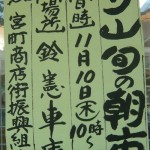 山旬の朝市
時 11月10日(木) 10時〜
場所 鈴憲車
宮町商店街振興組